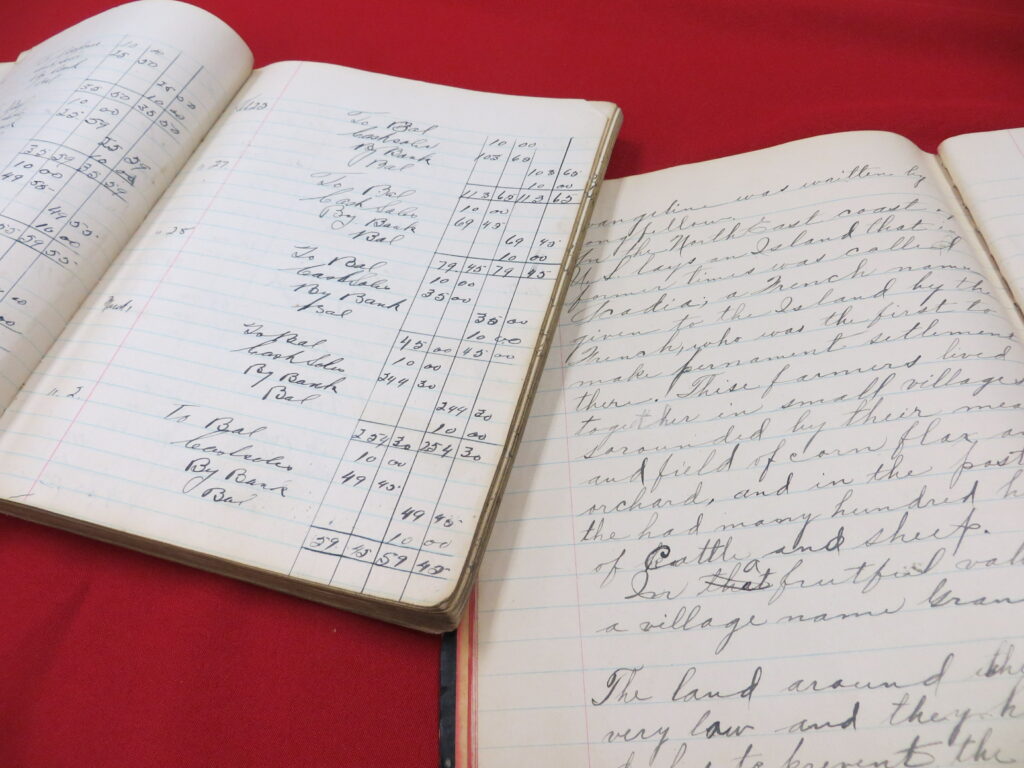 25 00
25 00
10 00
35 00 35 00
10 00
25 59
25 59
10 00
35 59 35 59
10 00
49 55
49 55
10 00
59 55
To Bal 10 00
Cash sales 103 60
By Bank 103 60
Bal 10 00
113 60 113 60
To Bal 10 00
Cash Sales 69 45
By Bank 69 45
Bal 10 00
79 45 79 45
25
To Bal 10 00
Cash sales 35 00
By Bank 35 00
Bal 10 00
45 00 45 00
To Bal 10 00
Cash Sales 244 30
By Bank 244 30
Bal 10 00
254 30 254 30
2
To Bal 10 00
Cash sales 49 45
By Bank 49 45
Bal 10 00
59 45 59 45
angeline was written by
ongfellow.
On the North East coast
lays an Island that in
former times was called
cadia; a French name
given to the Island by the
French, who was the first to
make permament settlemen
there. Thise farmers lived
together in small villages
sorounded by their mea
and field of corn flax, an
orchard, and in the past
the had many hundred h
of Cattle and sheep.
In that a fruitful val
a village name Gran
The land around the
very low and they h
to prevent the